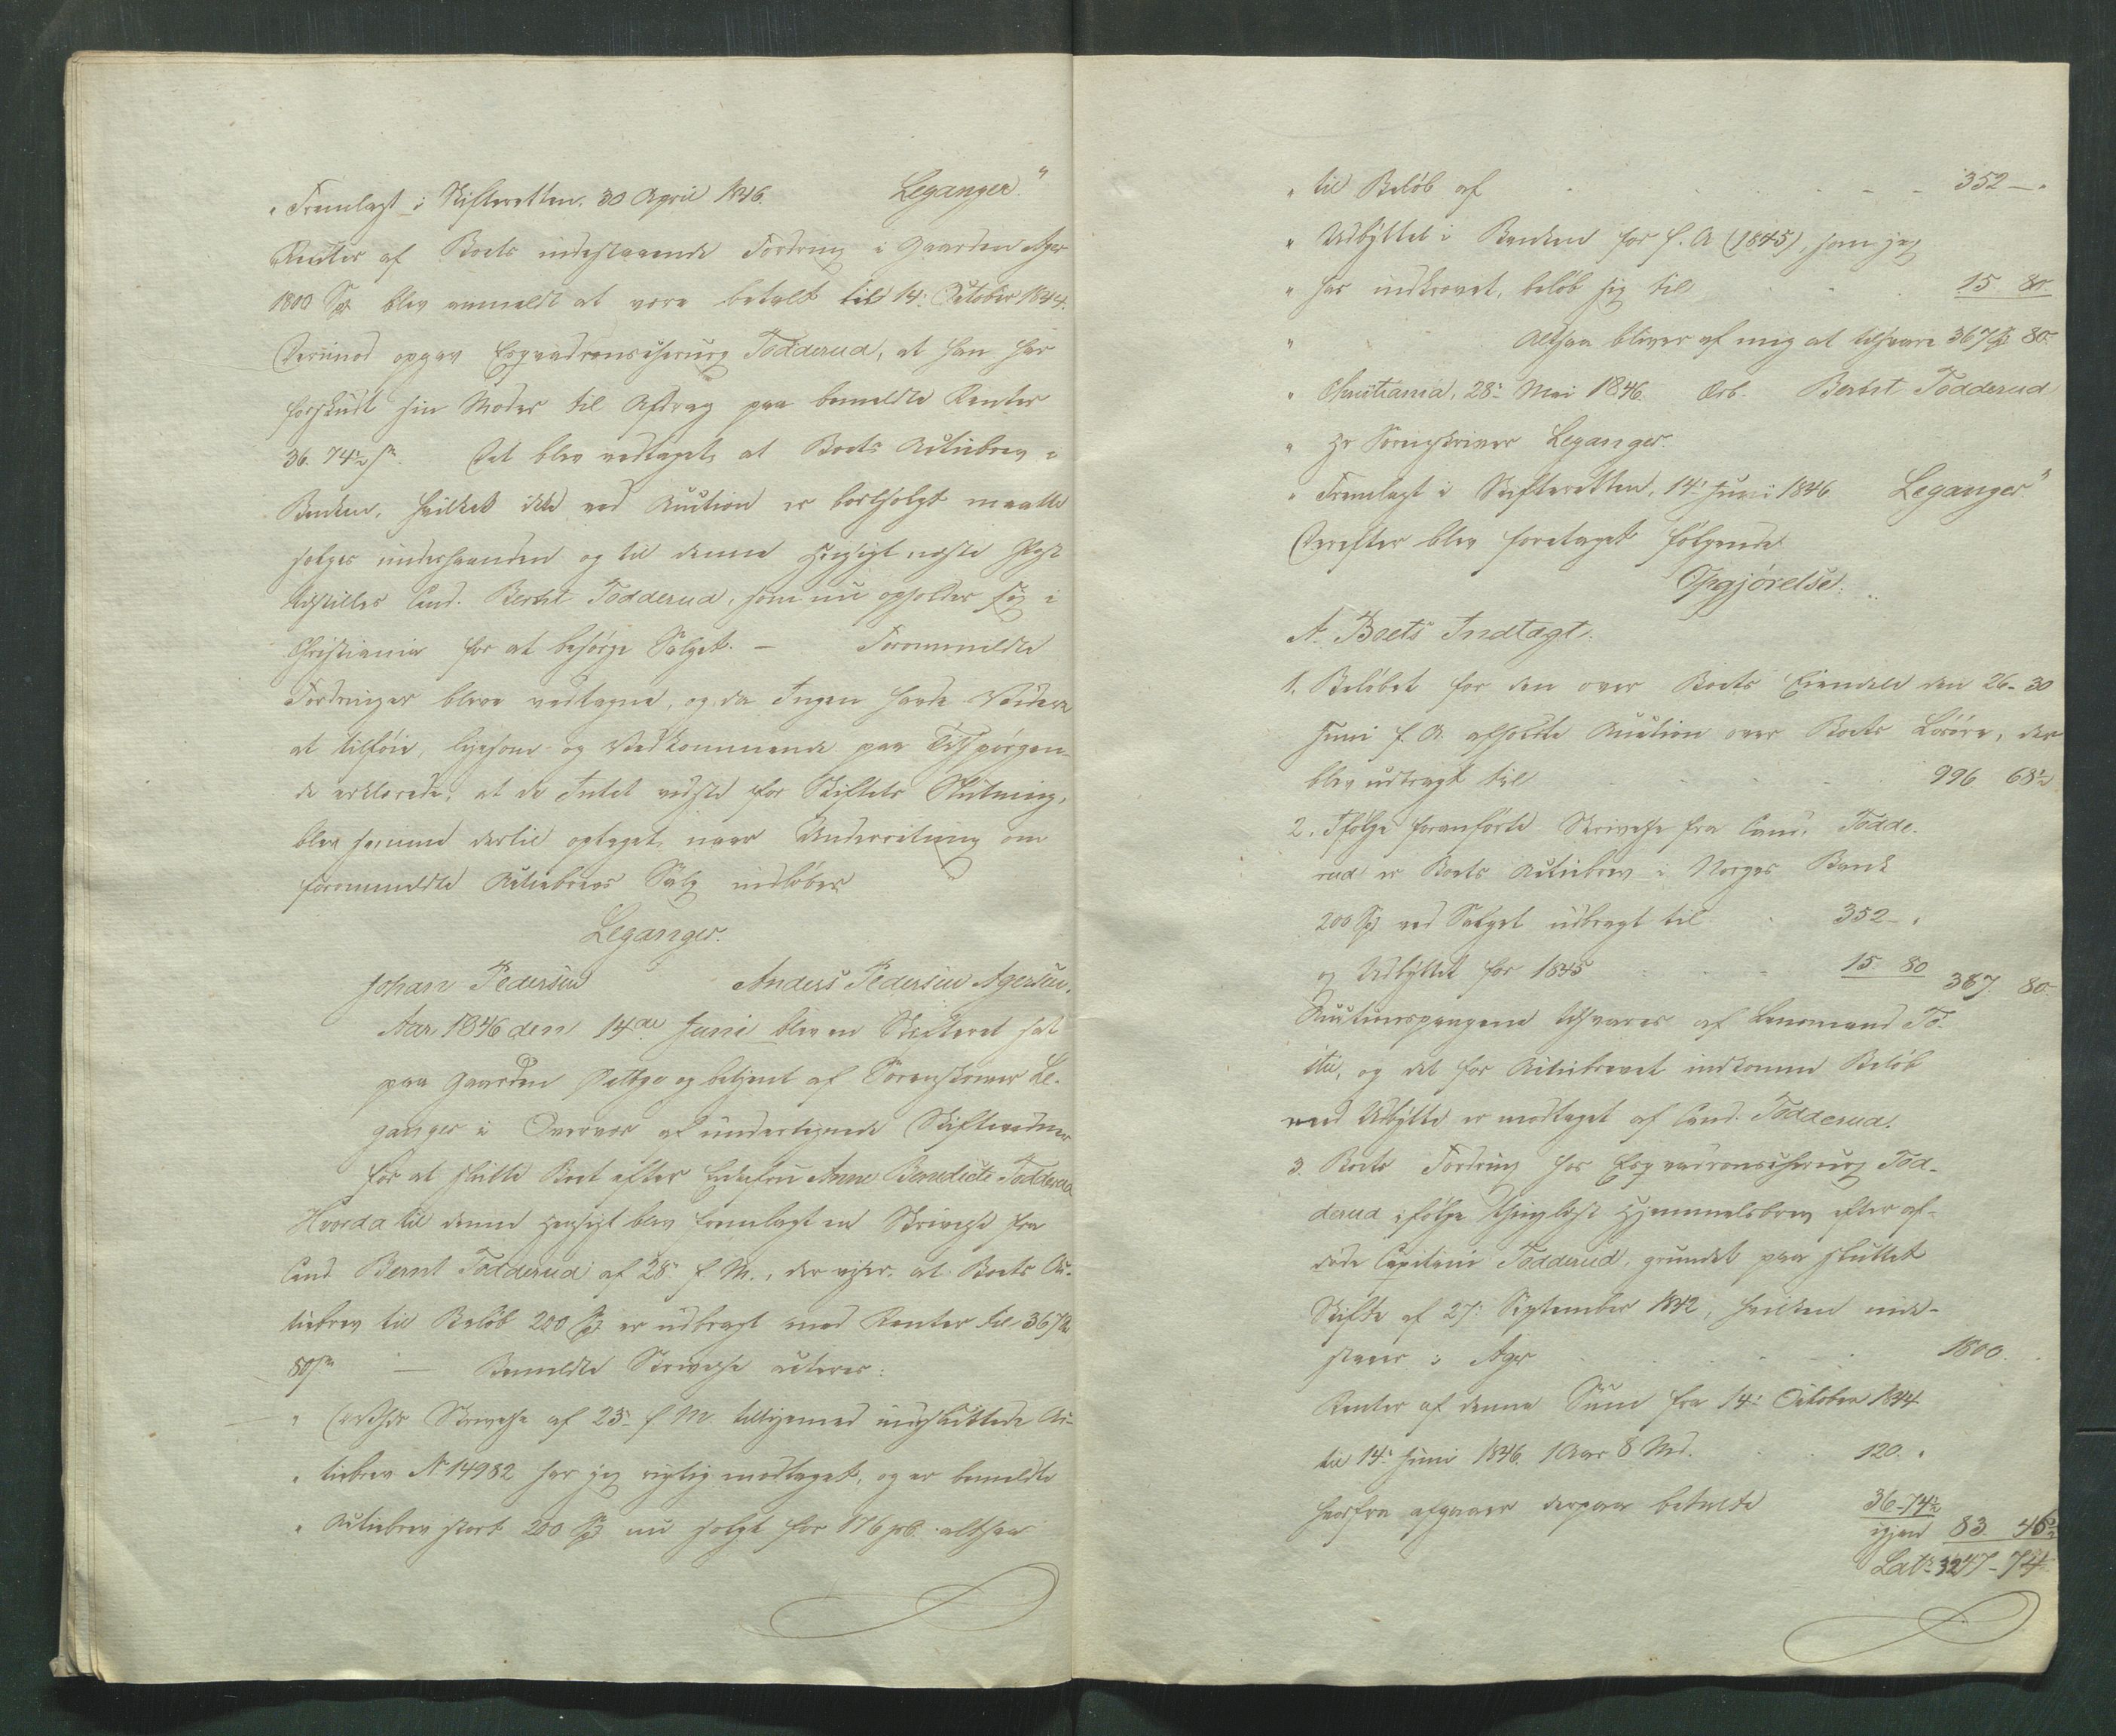 „ Fremlagt i Skifteretten. 30 April 1846. Leganger."
Renter af Boets indestaaende Fordring i Gaarden Ager
1800 Spd blev anmeldt at være betalt til 14: October 1844.
Derimod opgav Esqvadronschirurg Todderud, at han har
forskudt sin Moder til Afdrag paa bemeldte Renter
36. 74½ s. Det blev vedtaget, at Boets Actiebrev i
Banken, hvilket ikke ved Auction er bortsolgt maatte
sælges underhaanden og til denne Hensigt næste Post
tilstilles Cand. Bernt Todderud, som nu opholder sig i
Christiania for at besørge Salget. – Foranmeldte
Fordringer bleve vedtagne, og da Ingen havde Videre
at tilføie, ligesom og Vedkommende paa Tilspørgen-
de erklærede, at de Intet vidste for Skiftets Slutning,
blev samme dertil optaget, naar Underretning om
foranmeldte Actiebrevs Salg indløber
Leganger.
Johan Pedersen Anders Pedersen Agersen.
Aar 1846 den 14de Juni blev en Skifteret sat
paa Gaarden og betjent af Sorenskriver Le-
ganger i Overvær af undertegnede Skiftevidner
for at slutte Boet efter Enkefru Anne Benedicte Todderud
Hvorda til denne Hensigt blev fremlagt en Skrivelse fra
Cand. Bernt Todderud af 28: f. M., der viser, at Boets Ac-
tiebrev til Beløb 200 Spd er udbragt med Renter til 367 Spd
80 s – Bemeldte Skrivelse acteres:
„ Skrivelse af 23: f. M. tilligemed indsluttede Ac-
„ tiebrev No 14982 har jeg rigtig modtaget, og er bemeldte
„ Actiebrev stort 200 Spd nu solgt for 176 pC. altsaa
„ til Beløb af 352 – „
„ Udbyttet i Banken for f. A (1845), som jeg
„ har indkrævet, beløb sig til 15. 80.
„ Altsaa bliver af mig at tilsvare 367 Spd 80
„ Christiania, 28: Mai 1846. Ærb. Bernt Todderud
„ Hr Sorenskriver Leganger.
„ Fremlagt i Skifteretten, 14: Juni 1846 Leganger"
Derefter blev foretaget følgende
Opgjørelse:
A. Boets Indtægt.
1. Beløbet for den over Boets Eiendele den 26-30
Juni f. A. afholdte Auction over Boets Løsøre, der
blev udbragt til 996 68½
2. Ifølge foranførte Skrivelse fra Cand. Todde-
rud er Boets Actiebrev i Norges Bank
200 Spd ved Salget udbragt til 352 – „
og Udbyttet for 1845 15 80 367. 80.
Auctionspengene tilsvares af Lensmand To-
, og det for Actiebrevet indkomne Beløb
med Udbytte er modtaget af Cand. Todderud.
3. Boets Fordring hos Esqvadronschirurg Tod-
derud ifølge thinglyst Hjemmelsbrev efter af-
døde Capitain Todderud, grundet paa sluttet
Skifte af 27: September 1842, hvilken inde-
staaer i Ager 1800.
Renter af denne Sum fra 14: October 1844
til 14: Juni 1846. 1 Aar 8 Md. 120. „
hvorfra afgaaer derpaa betalte 36-74½
igjen 83 45½
Lats 3247-74